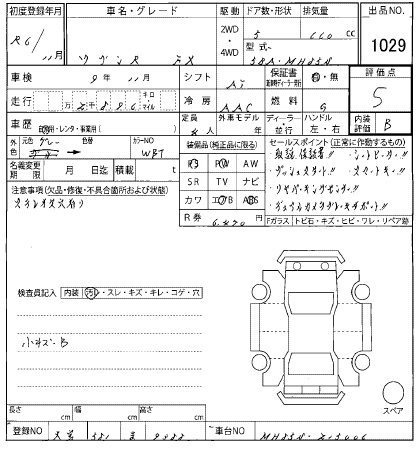 初度登録年月 車名・グレード 駆動 ドア数・形状 排気量 出品NO.
R6/ 11月 ワゴンR FX 2WD・4WD 5 660 cc 1029
型式
5BA-MH85S
車検 9年 11月 シフト AT 保証書 有・無 評価点
5
走行 キロ・マイル 冷房 AAC 燃料 G
車歴 自家用・レンタ・事業用( ) 定員 4人 外車モデル 年 ディーラー・並行 ハンドル 左・右 内装評価 B
外色 元色 グレー 色替 カラーNO WBT
装備品(純正品に限る) セールスポイント(正常に作動するもの)
取説保証書!! シートヒーター!!
名義変更期限 月 日迄 積載 t
PS PW AW
SR TV ナビ
カワ エアB ABS
R券 円
プッシュスタート!! スマートキー!!
リヤパーキングセンサー!!
デュアルカメラブレーキサポート!!
Fガラス トビ石・キズ・ヒビ・ワレ・リペア跡
注意事項(欠品・修復・不具合箇所および状態)
検査員記入 内装 汚レ・スレ・キズ・キレ・コゲ・穴
小キズ・B
スペア
長さ cm 幅 cm 高さ cm
登録NO 車台NO MH85S-